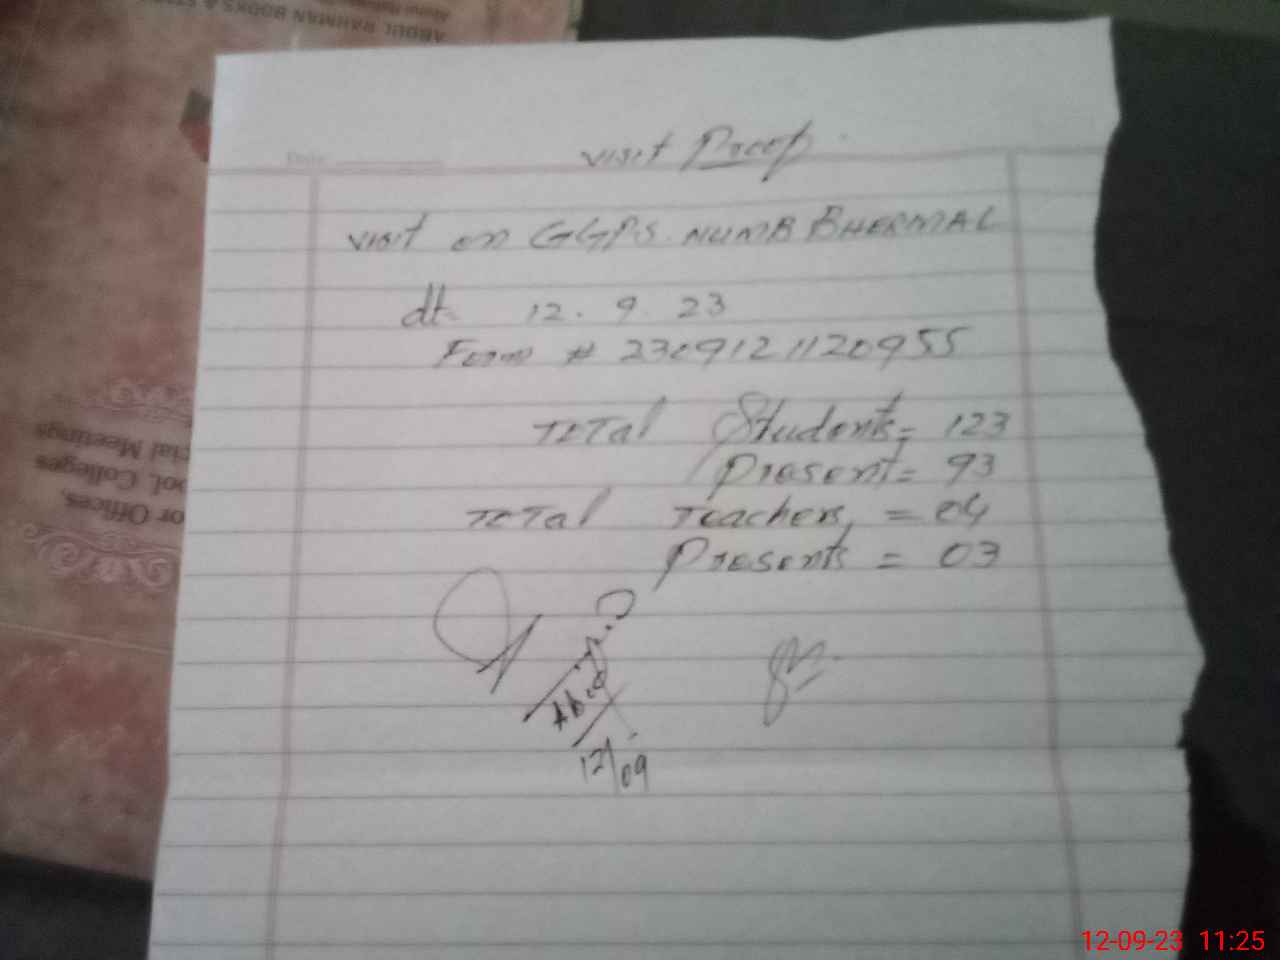 ABDUL RAHMAN BOOKS &
Date
visit Proof.
visit on GGPS. NUMB BHERMAL
dt. 12. 9. 23
Form # 2309121120955
Total Students = 123
Present = 93
Total Teachers, = 04
Presents = 03
12/09
or Offices,
Colleges
Meetings
12-09-23 11:25